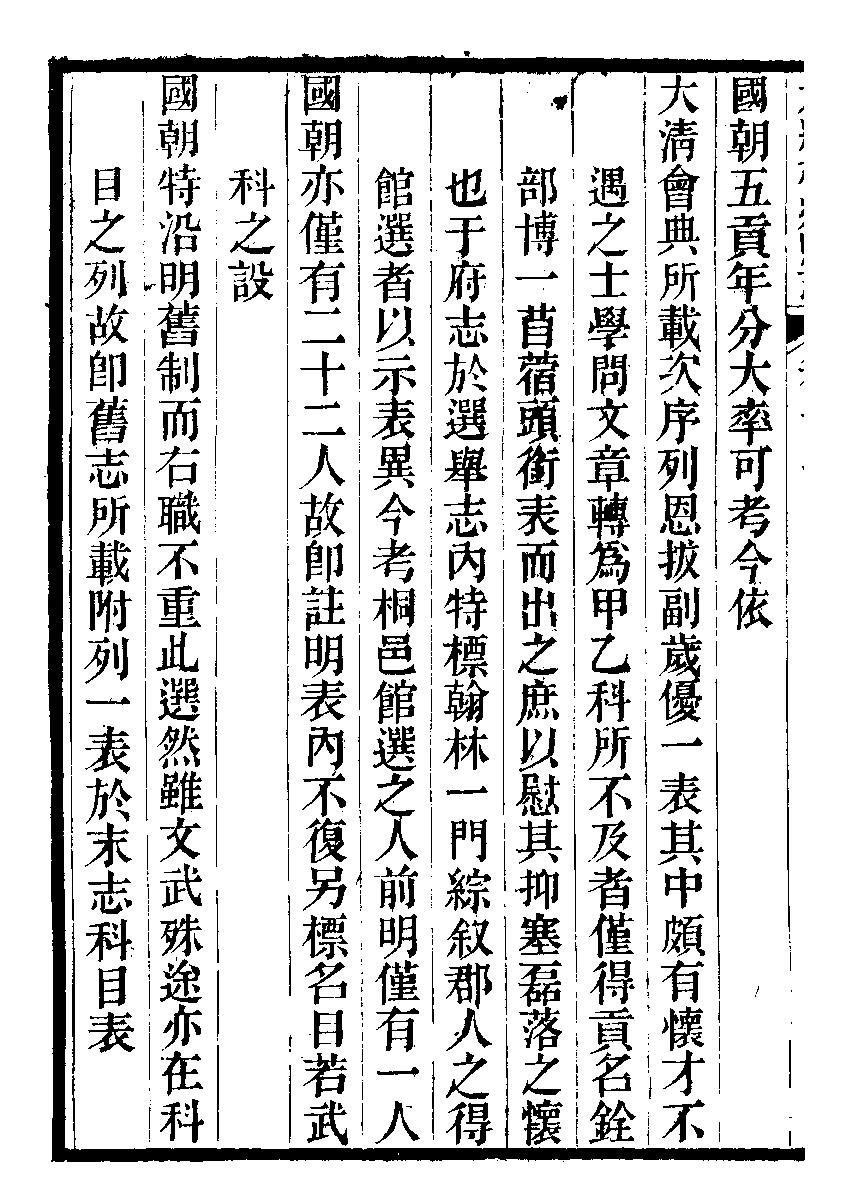 國朝五貢年分大率可考今依
大清會典所載次序列恩拔副歲優一表其中頗有懷才不
遇之士學問文章轉爲甲乙科所不及者僅得貢名銓
部博一苜蓿頭銜表而出之庶以慰其抑塞磊落之懷
也于府志於選舉志內特標翰林一門綜叙郡人之得
館選者以示表異今考桐邑館選之人前明僅有一人
國朝亦僅有二十二人故卽註明表內不復另標名目若武
科之設
國朝特沿明舊制而右職不重此選然雖文武殊途亦在科
目之列故卽舊志所載附列一表於末志科目表